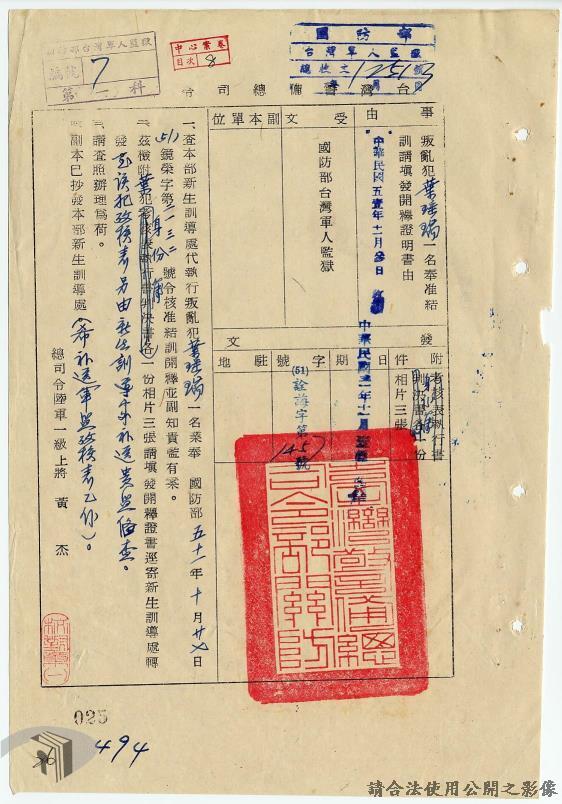 國防部台灣軍人監獄
7
第 科
中心案卷
目次 8
國防部
台灣軍人監獄
總收文
台灣警備總司令
事由
叛亂犯葉瑞瑞一名奉准結
訓請填發開釋證明書由
受文
國防部台灣軍人監獄
副本單位
附件
考核表執行書
判決書各一份
相片三張
發文
日期
中華民國五十一年十一月
字號
(51)詮誨字第
駐地
台灣警備總司令部關防
一、查本部新生訓導處代執行叛亂犯葉瑞瑞一名業奉 國防部五十一年十月廿七日
(51)鏡榮字第二一三二號令核准結訓開釋並副知貴監有案。
二、茲檢附葉犯身份簿一份相片三張請填發開釋證書逕寄新生訓導處轉
發，至該犯考核表另由新生訓導處補送貴監備查。
三、請查照辦理為荷。
副本已抄發本部新生訓導處(希補送軍監考核表乙份)。
總司令陸軍一級上將 黃 杰
025
494
請合法使用公開之影像